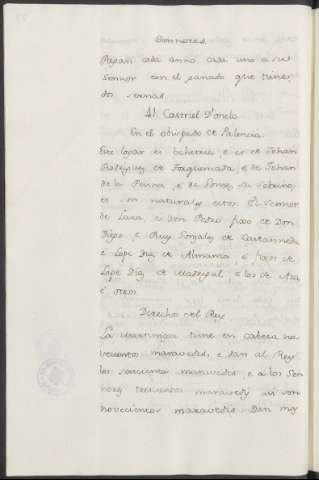 Sonnores
Pagan cada anno cada uno a su
Sennor con el ganado que tiene
dos sernas
Al Castriel D'onelo
En el obispado de Palencia
Este logar es behetria, e es de Johan
Rodriguez de Torquemada, e de Johan
de la Penna, e de Gomez su sobrino
e son naturales estos. El Sennor
de Lara, e don Pedro fijo de Don
Diego, e Ruy Gonzalez de Castanneda
e Lope Diaz de Almansa, e fijos de
Lope Diaz de, e los de Aza,
e otros
Derechos del Rey
La martiniega tiene en cabeza no-
vecientos maravedis, e dan al Rey
los seiscientos maravedis, e a los Sen-
nores trescientos maravedis asi son
novecientos maravedis. Dan mo